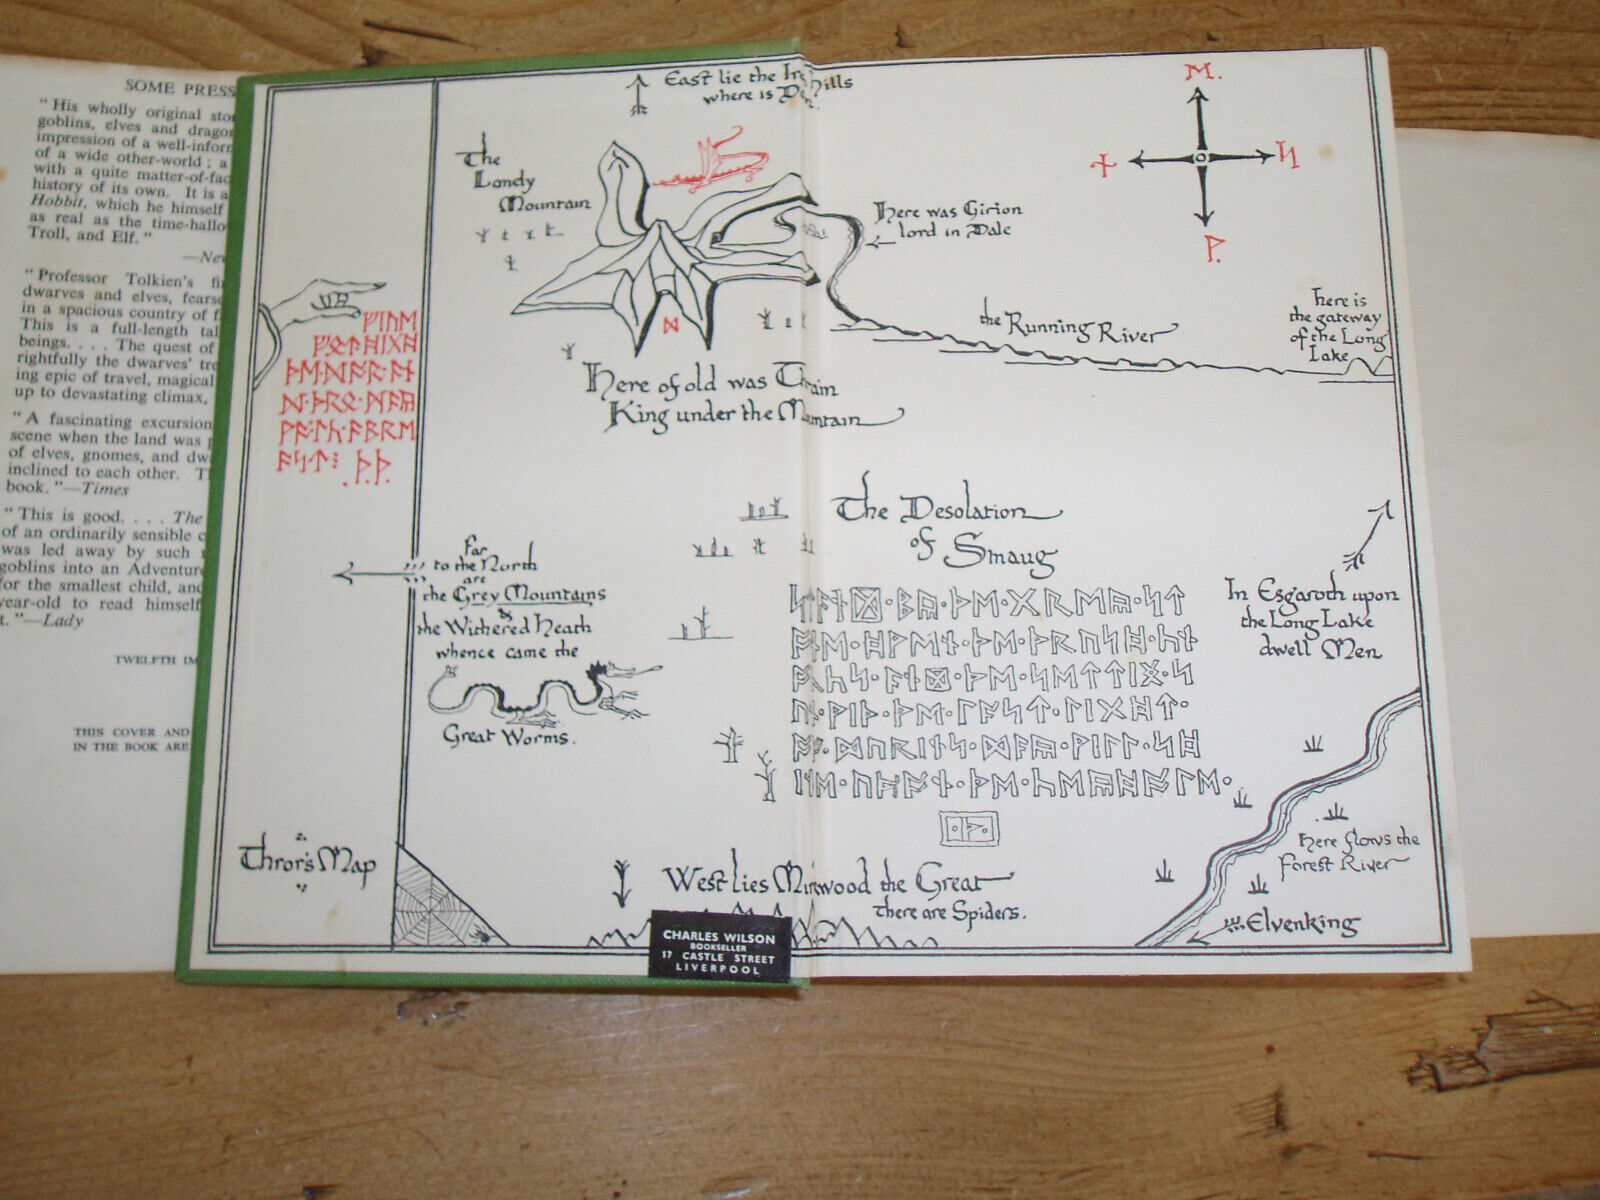 SOME PRESS
"His wholly original
goblins, elves and
impression of a
of a wide other-world; a
with a quite
history of its own. It is a
Hobbit, which he himself
as real as the
Troll, and Elf."
"Professor Tolkien's
dwarves and elves,
in a spacious country of
This is a full-length
beings. . . . The quest of
rightfully the dwarves'
ing epic of travel, magical
up to devastating climax,
"A fascinating excursion
scene when the land was
of elves, gnomes, and
inclined to each other.
book."—Times
"This is good. . . . The
of an ordinarily sensible
was led away by such
goblins into an
for the smallest child, and
year-old to read himself
—Lady
TWELFTH
THIS COVER AND
IN THE BOOK ARE
East lie the Iron Hills
where is Dain.
ᛖ.
ᚾ
ᛋ
ᚹ.
The
Lonely
Mountain
Here was Girion
lord in Dale
the Running River
Here is
the gateway
of the Long
Lake
ᛞ
Here of old was Thrain
King under the Mountain
ᚠᛁᚢᛖ
ᚠᛟᛏ᛫ᚻᛁᚷᚻ
ᚦᛖ᛫ᛞᚩᚱ᛫ᚪᚾ
ᛞ᛫ᚦᚱᛟ᛫ᛗᚪᚣ
ᚹᚪᛚᚳ᛫ᚪᛒᚱᛖ
ᚪᛋᛏ᛬
᛫ᚦ᛫ᚦ᛫
The Desolation
of Smaug
Far
to the North
are
the Grey Mountains
&
the Withered Heath
whence came the
Great Worms.
ᛋᛏᚪᚾᛞ᛫ᛒᚣ᛫ᚦᛖ᛫ᚷᚱᛖᚣ᛫ᛋᛏ
ᚩᚾᛖ᛫ᚻᚹᛖᚾ᛫ᚦᛖ᛫ᚦᚱᚢᛋᚻ᛫ᚳᚾ
ᚩᚳᚳᛋ᛫ᚪᚾᛞ᛫ᚦᛖ᛫ᛋᛖᛏᛏᛁᛝ᛫ᛋ
ᚢᚾ᛫ᚹᛁᚦ᛫ᚦᛖ᛫ᛚᚪᛋᛏ᛫ᛚᛁᚷᚻᛏ᛫
ᚩᚠ᛫ᛞᚢᚱᛁᚾᛋ᛫ᛞᚪᚣ᛫ᚹᛁᛚᛚ᛫ᛋᚻ
ᛁᚾᛖ᛫ᚢᛈᚩᚾ᛫ᚦᛖ᛫ᚳᛖᚣᚻᚩᛚᛖ᛫
᛫ᚦ᛫
In Esgaroth upon
the Long Lake
dwell Men
Here flows the
Forest River
Elvenking
Thror's Map
West lies Mirkwood the Great
there are Spiders.
CHARLES WILSON
BOOKSELLER
17 CASTLE STREET
LIVERPOOL